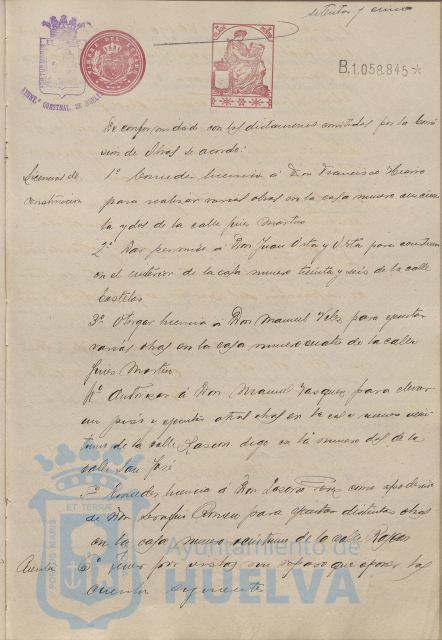 B.1.058.845*
De conformidad con los dictamenes emitidos por la Comi-
sion de Obras se acordó:
Licencias de
construccion
1º Conceder licencia á Don Francisco
para realizar varias obras en la casa numero cincuen-
ta y dos de la calle Ginés Martin
2º Dar permiso á Don Juan Orta y Orta para construir
en el interior de la casa numero treinta y seis de la calle
Castelar
3º Otorgar licencia á Don Manuel Velez para ejecutar
varias obras en la casa numero cuatro de la calle
Ginés Martin
4º Autorizar á Don Manuel Vasquez para elevar
un piso y ejecutar otras obras en la casa numero
de la calle Rascon, digo en la numero dos de la
calle San José
5º Conceder licencia á Don como apoderado
de Don para ejecutar distintas obras
en la casa numero de la calle
Cuentas
6º por vistas sin reparo que oponer las
cuentas siguientes
PORTUS MARIS
ET TERRAE
Ayuntamiento de
HUELVA